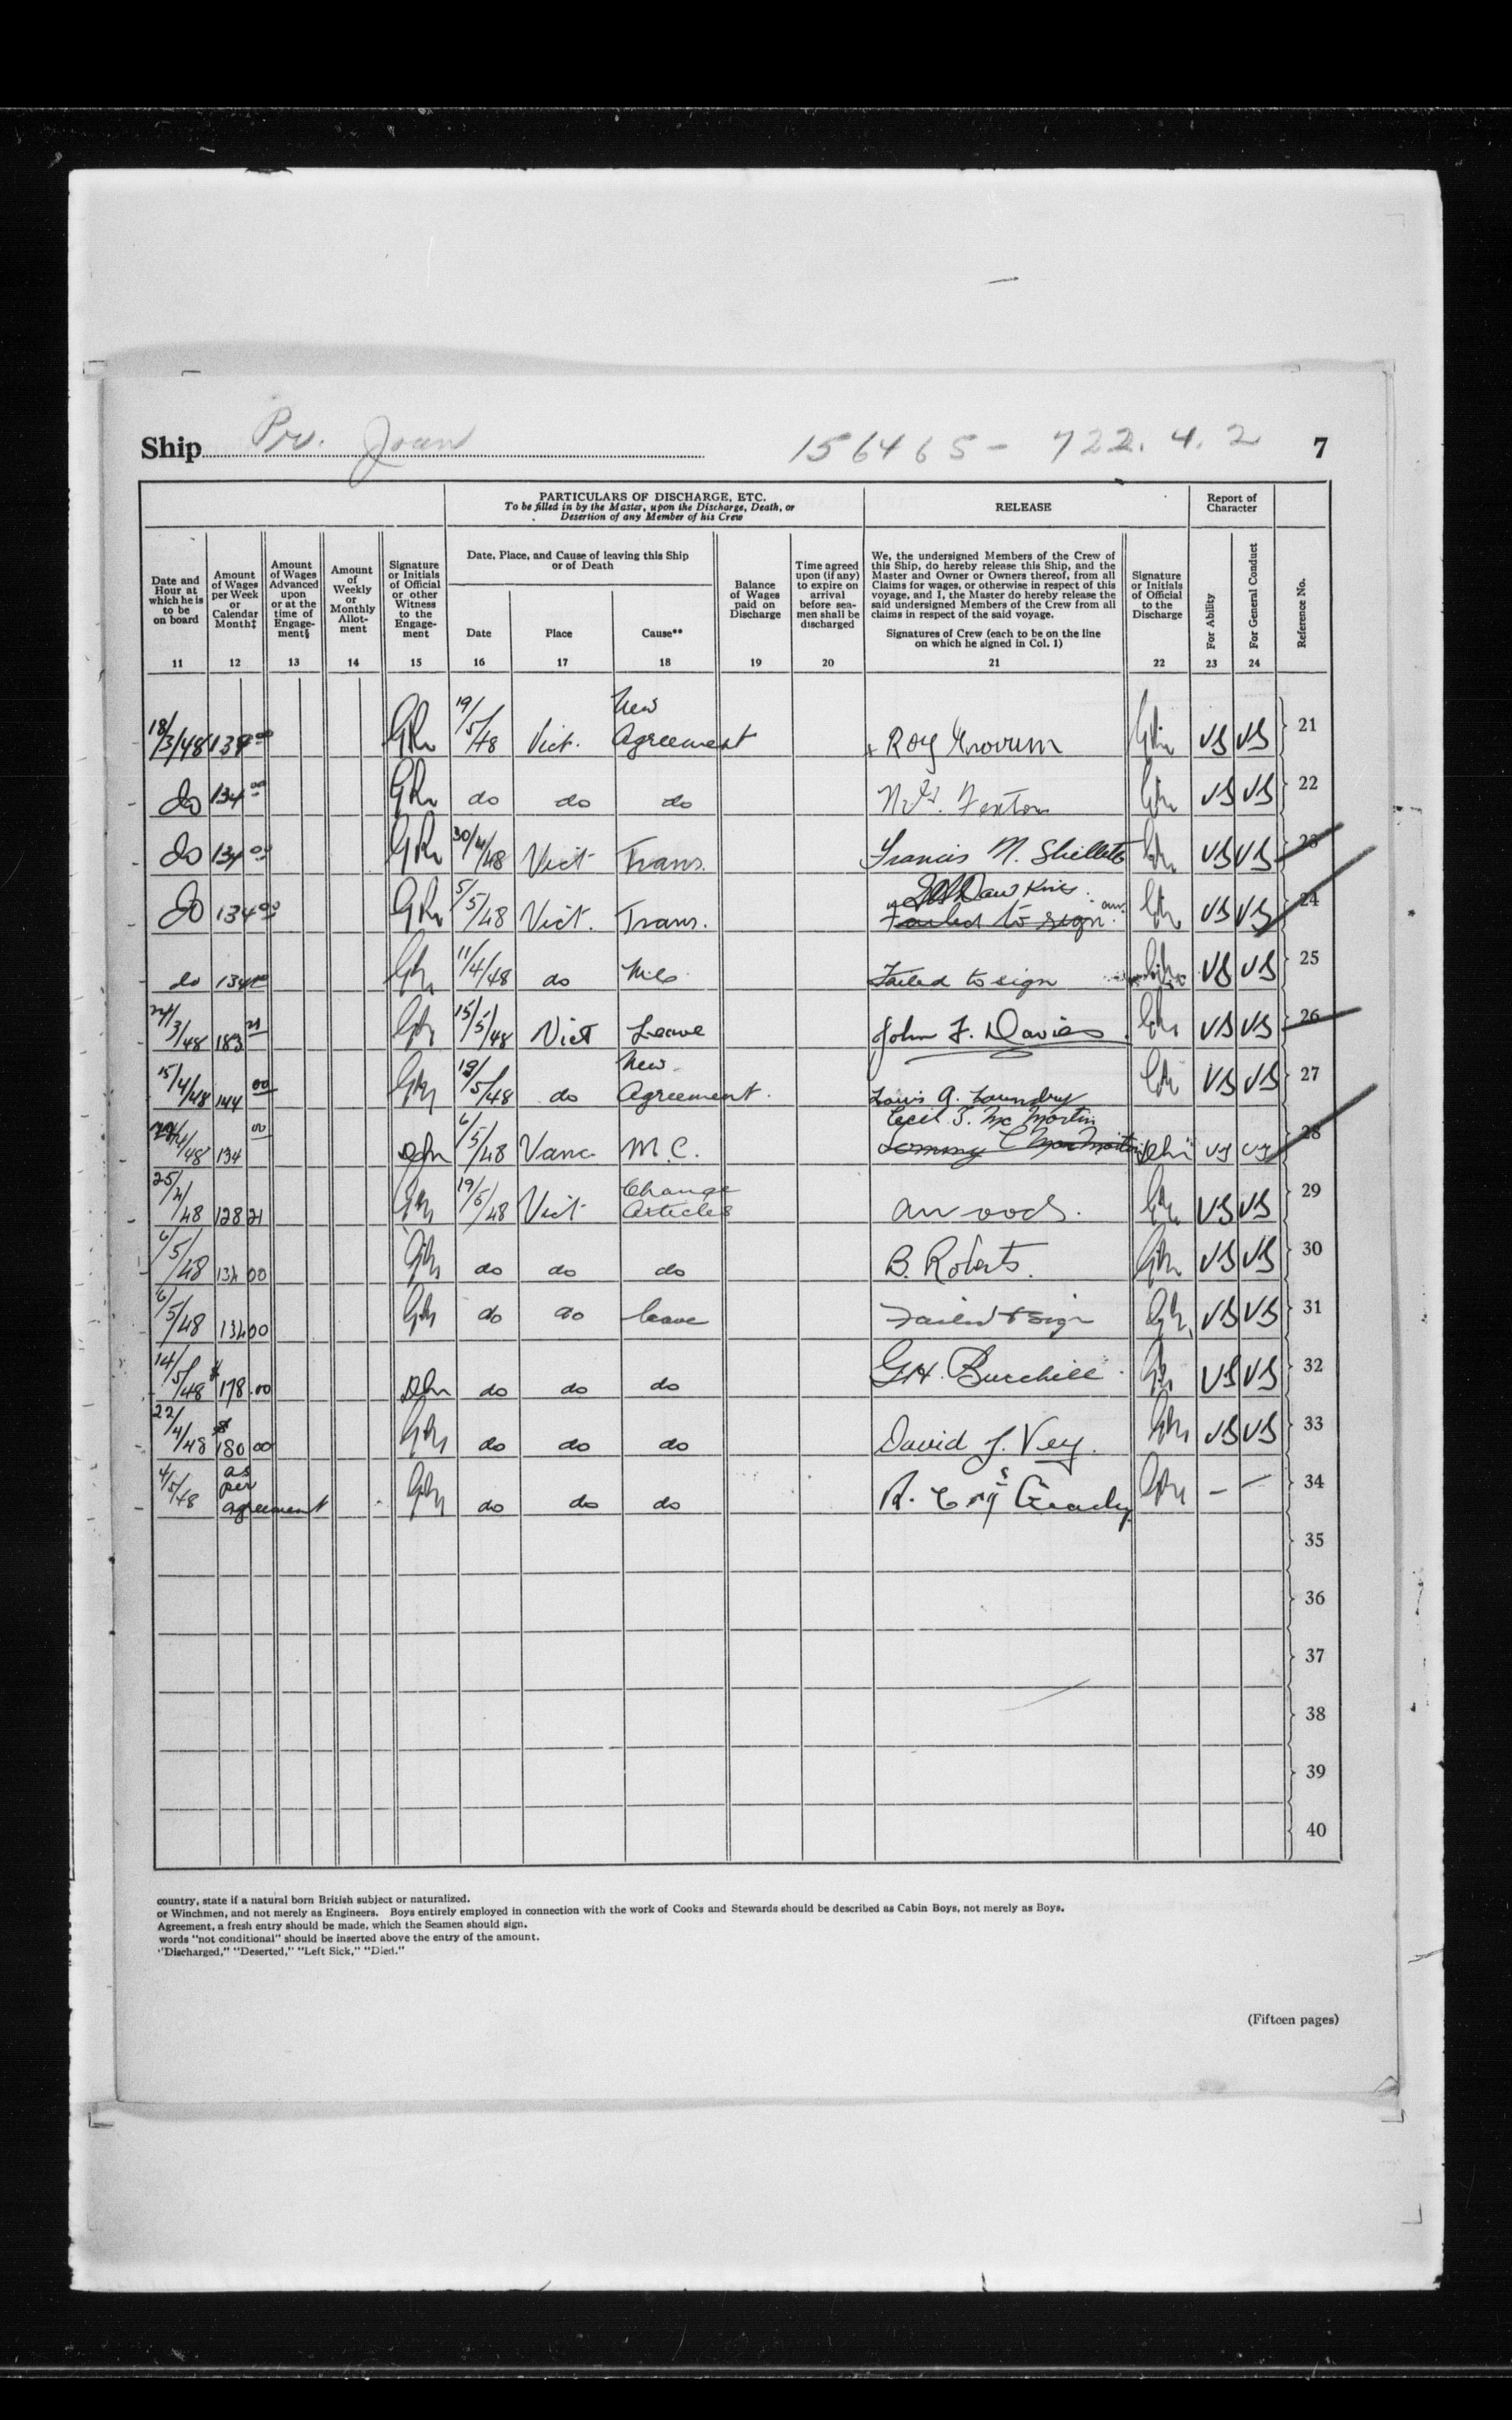 Ship Joan 156465 - 722. 4. 2 7
PARTICULARS OF DISCHARGE, ETC.
To be filled in by the Master, upon the Discharge, Death, or
Desertion of any Member of his Crew
RELEASE
Report of
Character
Date and
Hour at
which he is
to be
on board
11
Amount
of Wages
per Week
or
Calendar
Month‡
12
Amount
of Wages
Advanced
upon
or at the
time of
Engage-
ment§
13
Amount
of
Weekly
or
Monthly
Allot-
ment
14
Signature
or Initials
of Official
or other
Witness
to the
Engage-
ment
15
Date, Place, and Cause of leaving this Ship
or of Death
Date
16
Place
17
Cause**
18
Balance
of Wages
paid on
Discharge
19
Time agreed
upon (if any)
to expire on
arrival
before sea-
men shall be
discharged
20
We, the undersigned Members of the Crew of
this Ship, do hereby release this Ship, and the
Master and Owner or Owners thereof, from all
Claims for wages, or otherwise in respect of this
voyage, and I, the Master do hereby release the
said undersigned Members of the Crew from all
claims in respect of the said voyage.
Signatures of Crew (each to be on the line
on which he signed in Col. 1)
21
Signature
or Initials
of Official
to the
Discharge
22
For Ability
23
For General Conduct
24
Reference No.
18/3/48 134 00 19/5/48 Vict. New Agreement Roy VS VS 21
do 134 00 do do do Fenton VS VS 22
do 134 00 30/4/48 Vict Trans. Francis M. VS VS 23
do 134 00 5/5/48 Vict. Trans. Dawkins Failed to sign VS VS 24
do 134 00 11/4/48 do Failed to sign VS VS 25
/3/48 183 21 15/5/48 Vict Leave John F. Davies VS VS 26
15/4/48 144 00 /5/48 do New Agreement Louis A. Laundry VS VS 27
/4/48 134 00 6/5/48 Vanc M.C. Cecil T. McMartin VS VS 28
25/4/48 128 21 19/5/48 Vict Change Articles VS VS 29
6/5/48 134 00 do do do B. Roberts. VS VS 30
6/5/48 134 00 do do leave Failed to sign VS VS 31
14/5/48 $178.00 do do do G.H. Burchill VS VS 32
22/4/48 $180 00 do do do David J. Vey. VS VS 33
4/5/48 as per agreement do do do - - 34
35
36
37
38
39
40
country, state if a natural born British subject or naturalized.
or Winchmen, and not merely as Engineers. Boys entirely employed in connection with the work of Cooks and Stewards should be described as Cabin Boys, not merely as Boys.
Agreement, a fresh entry should be made, which the Seamen should sign.
words "not conditional" should be inserted above the entry of the amount.
"Discharged," "Deserted," "Left Sick," "Died."
(Fifteen pages)